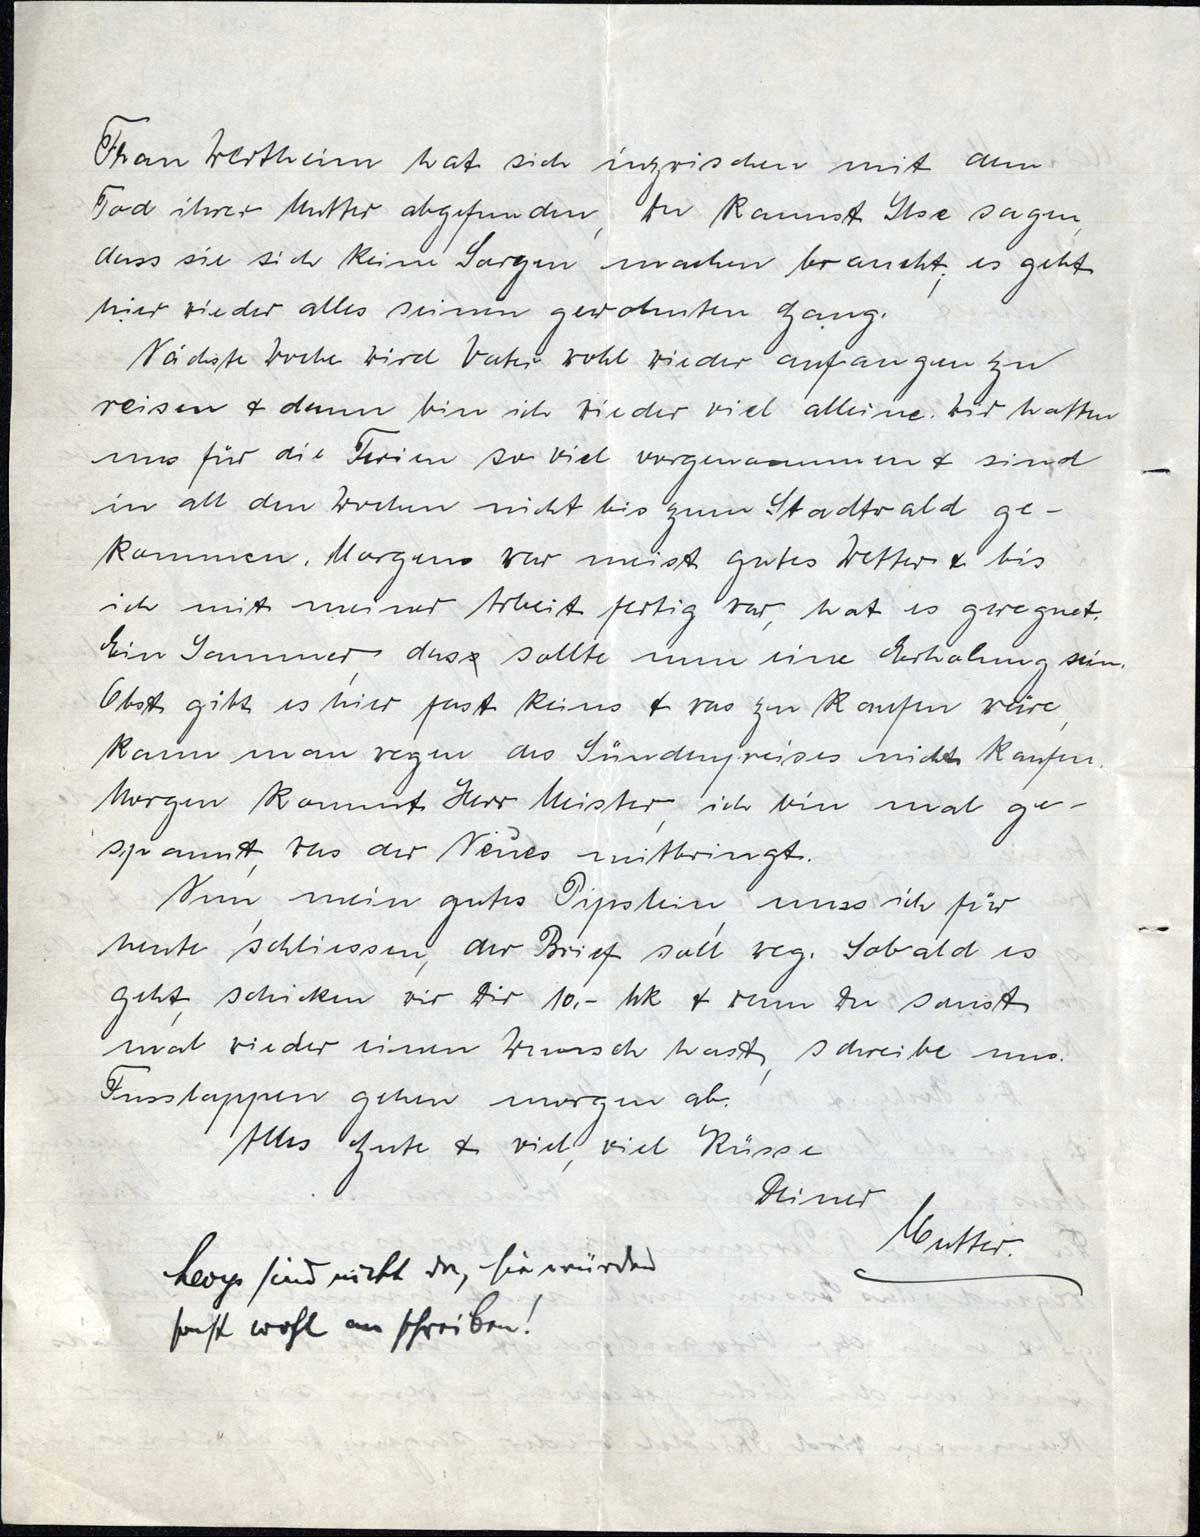 Frau Wertheim hat sich inzwischen mit dem
Tod ihrer Mutter abgefunden, Du kannst Ilse sagen,
dass sie sich keine Sorgen machen braucht, es geht
hier wieder alles seinen gewohnten Gang.
Nächste Woche wird Vater wohl wieder anfangen zu
reisen & dann bin ich wieder viel alleine. Wir hatten
uns für die Ferien so viel vorgenommen & sind
in all den Wochen nicht bis zum Stadtwald ge-
kommen. Morgens war meist gutes Wetter & bis
ich mit meiner Arbeit fertig war, hat es geregnet.
Ein Sommer, das sollte nun eine Erholung sein.
Obst gibt es hier fast keins & was zu kaufen wäre,
kann man wegen des Sündenpreises nicht kaufen.
Morgen kommt Herr Meister, ich bin mal ge-
spannt, was der Neues mitbringt.
Nun, mein gutes Pipslein, muss ich für
heute schliessen, der Brief soll weg. Sobald es
geht, schicken wir Dir 10,- Mk & wenn Du sonst
mal wieder einen Wunsch hast, schreibe uns.
Fusslappen gehen morgen ab.
Alles Gute & viel, viel Küsse
Deiner
Mutter.
Levys sind nicht da, sie würden
sonst wohl anschreiben!